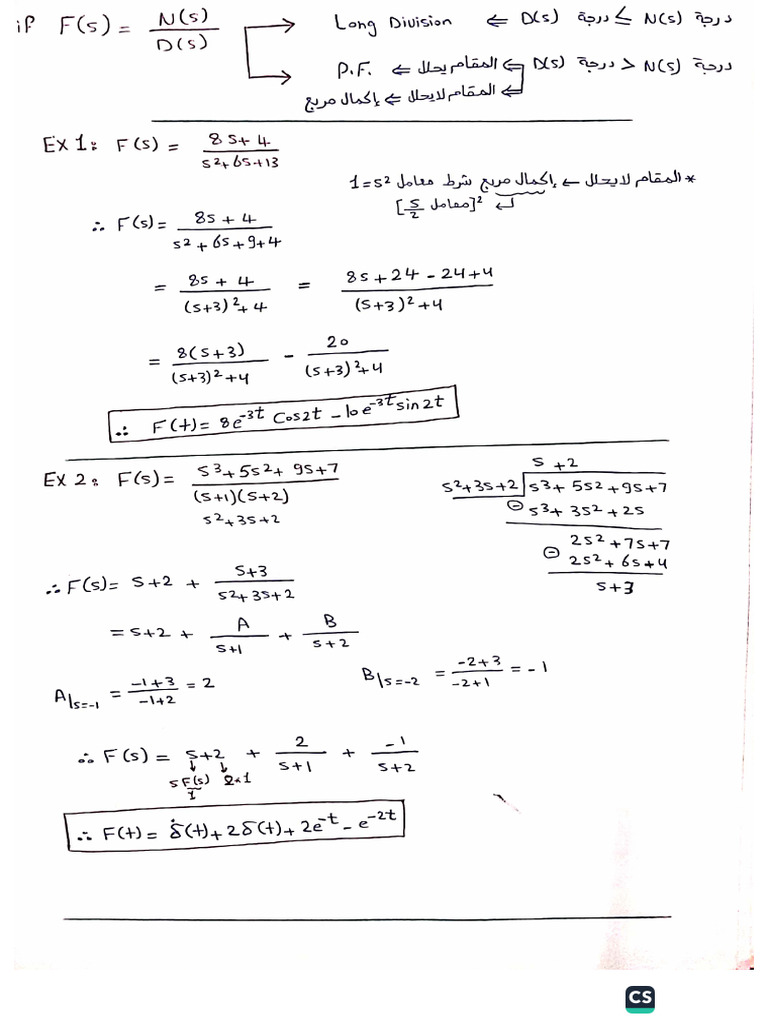 if F(s) = N(s)/D(s) → Long Division ⇐ درجة N(s) ≥ درجة D(s)
→ P.F. ⇐ المقام يحلل ⇐ درجة N(s) < درجة D(s)
المقام لايحلل ⇐ إكمال مربع
Ex 1: F(s) = (8s+4)/(s²+6s+13)
* المقام لايحلل ← إكمال مربع شرط معامل s² = 1
[معامل s/2]²
∴ F(s) = (8s+4)/(s²+6s+9+4)
= (8s+4)/((s+3)²+4) = (8s+24-24+4)/((s+3)²+4)
= 8(s+3)/((s+3)²+4) - 20/((s+3)²+4)
∴ F(t) = 8e^-3t Cos2t - 10e^-3t sin2t
Ex 2: F(s) = (s³+5s²+9s+7)/((s+1)(s+2))
s²+3s+2
s+2
s²+3s+2 | s³+5s²+9s+7
⊖ s³+3s²+2s
2s²+7s+7
⊖ 2s²+6s+4
s+3
∴ F(s) = s+2 + (s+3)/(s²+3s+2)
= s+2 + A/(s+1) + B/(s+2)
A|s=-1 = (-1+3)/(-1+2) = 2
B|s=-2 = (-2+3)/(-2+1) = -1
∴ F(s) = s+2 + 2/(s+1) + -1/(s+2)
↓ ↓
sF(s) 2×1
1
∴ F(t) = δ̇(t) + 2δ(t) + 2e^-t - e^-2t
CS